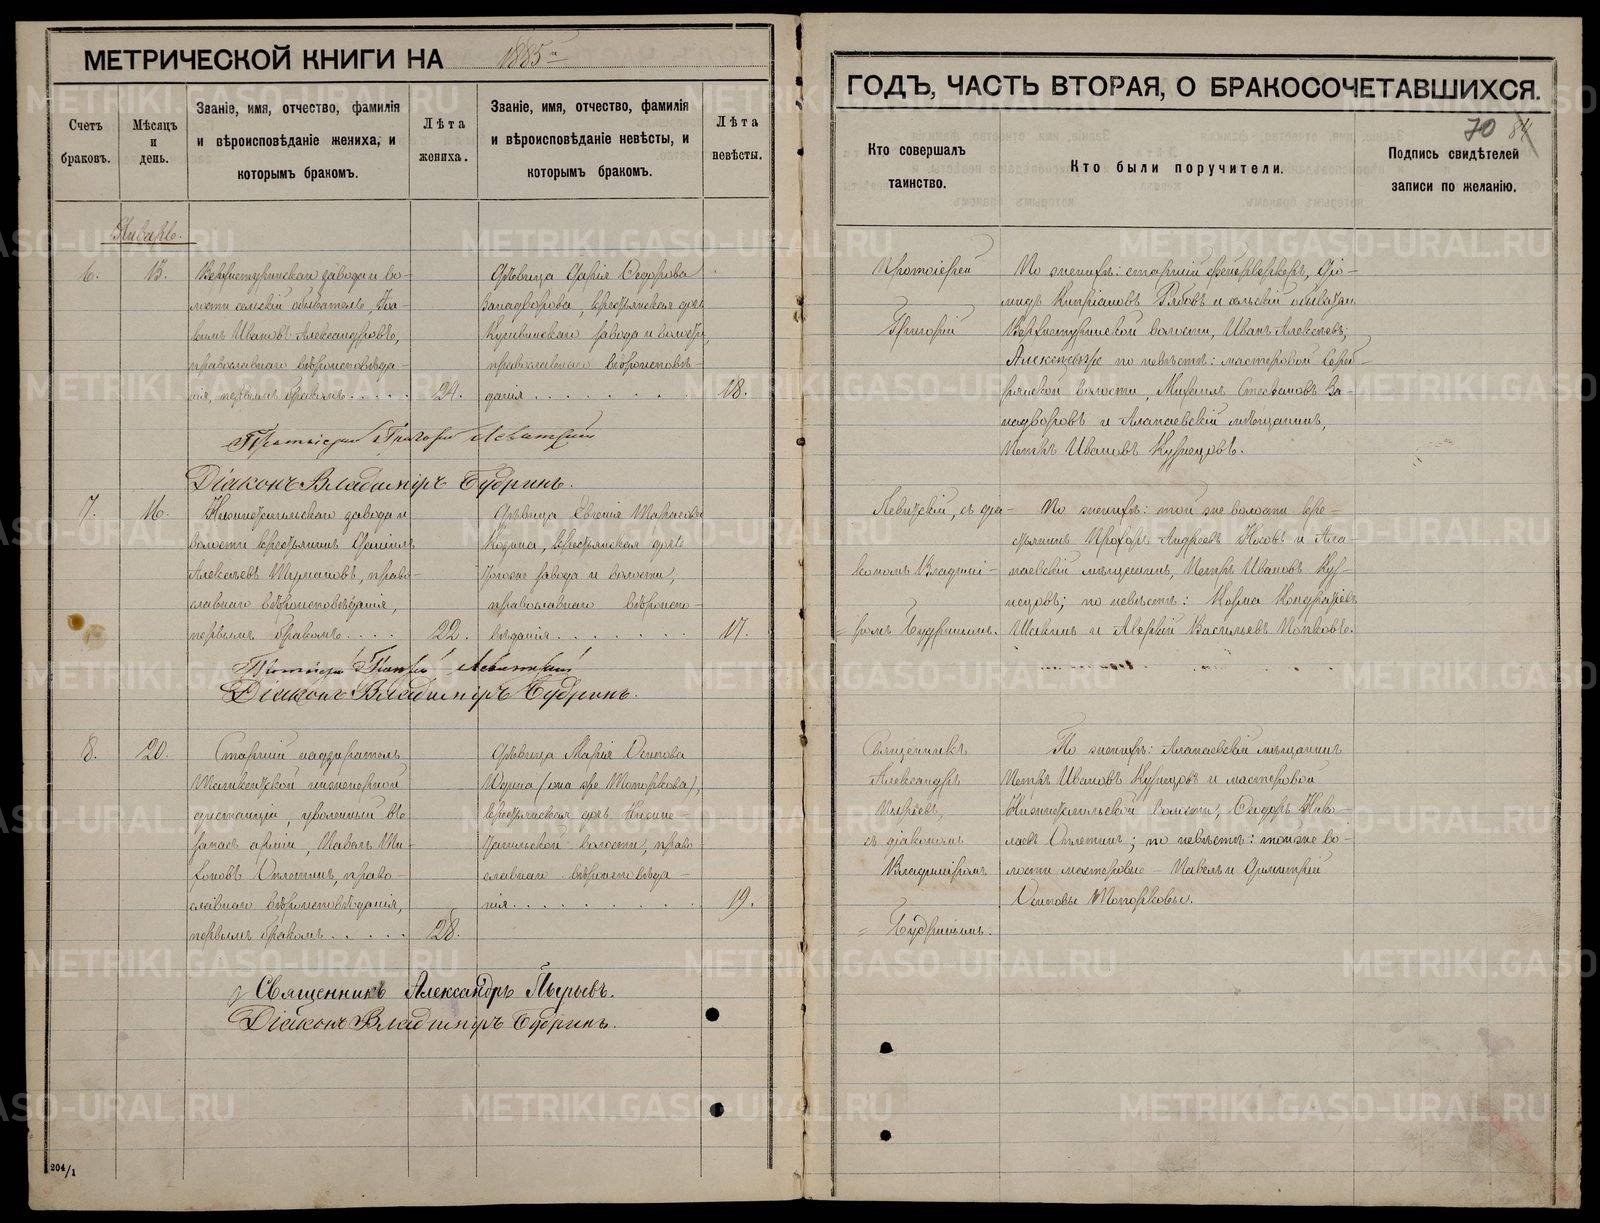 МЕТРИЧЕСКОЙ КНИГИ НА 1885й
ГОДЪ, ЧАСТЬ ВТОРАЯ, О БРАКОСОЧЕТАВШИХСЯ.
70 84
Счетъ браковъ.
Мѣсяцъ и день.
Званіе, имя, отчество, фамилія
и вѣроисповѣданіе жениха, и
которымъ бракомъ.
Лѣта жениха.
Званіе, имя, отчество, фамилія
и вѣроисповѣданіе невѣсты, и
которымъ бракомъ.
Лѣта невѣсты.
Кто совершалъ
таинство.
Кто были поручители.
Подпись свидѣтелей
записи по желанію.
Январь.
6. 15.
Верхнетуринскаго завода и во-
лости сельскій обыватель,
Ивановъ Александровъ,
православнаго вѣроисповѣда-
нія, первымъ бракомъ . . . . . 24.
Дѣвица Дарія Ѳедорова
Западворова, крестьянская дочь
Кушвинскаго завода и волости,
православнаго вѣроисповѣ-
данія . . . . . . . . 18.
Протоіерей
Григорій
По женихѣ: старшій фейерверкеръ, Діо-
мидъ Кипріановъ Рябовъ и сельскій обыватель
Верхнетуринской волости, Иванъ Алексѣевъ
по невѣстѣ: мастеровой Сереб-
рянской волости, Михаилъ Стефановъ За-
падворовъ и Алапаевскій мѣщанинъ,
Петръ Ивановъ Кузнецовъ.
Протоіерей Григорій Левитскій
Діаконъ Владиміръ Будринъ.
7. 16.
Нижнетагильскаго завода и
волости крестьянинъ Даніилъ
Алексѣевъ Шумановъ, право-
славнаго вѣроисповѣданія,
первымъ бракомъ . . . . 22.
Дѣвица Евгенія Тарасова
крестьянская дочь
завода и волости,
православнаго вѣроиспо-
вѣданія . . . . . . . 17.
Левитскій, съ діа-
кономъ Владимі-
ромъ Будринымъ.
По женихѣ: той же волости кре-
стьянинъ Прохоръ Андреевъ Носовъ и Ала-
паевскій мѣщанинъ, Петръ Ивановъ Куз-
нецовъ; по невѣстѣ: Козма Кондратьевъ
Шавинъ и Аверкій Васильевъ Попковъ.
Протоіерей Григорій Левитскій
Діаконъ Владиміръ Будринъ.
8. 20.
Старшій надзиратель
Ташкентской инженерной
дистанціи, уволенный въ
запасъ арміи, Павелъ Ти-
товъ Оплетинъ, право-
славнаго вѣроисповѣданія,
первымъ бракомъ . . . . . 28.
Дѣвица Марія Осипова
Юдина (она же Топоркова),
крестьянская дочь Нижне-
Тагильской волости, право-
славнаго вѣроисповѣда-
нія . . . . . . . . . 19.
Священникъ
Александръ
Пырьевъ,
съ діакономъ
Владиміромъ
Будринымъ.
По женихѣ: Алапаевскій мѣщанинъ
Петръ Ивановъ Кузнецовъ и мастеровой
Нижнетагильской волости, Ѳедоръ Нико-
лаевъ Оплетинъ; по невѣстѣ: той же во-
лости мастеровые Павелъ и Димитрій
Осиповы Топорковы.
Священникъ Александръ Пырьевъ.
Діаконъ Владиміръ Будринъ.
204/1
METRIKI.GASO-URAL.RU